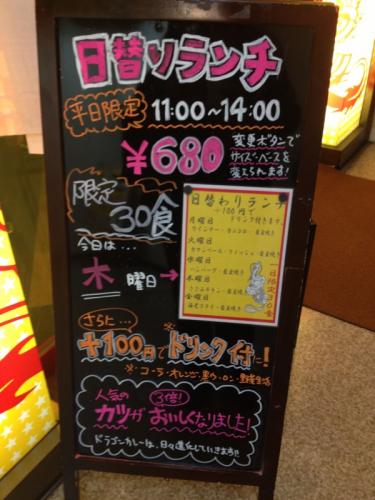 日替りランチ
平日限定 11:00〜14:00
¥680
変更ボタンで
サイズ・ベースを
変えられます!
限定
30食
今日は…
木 曜日 →
日替わりランチ
+100円で
ドリンク付きます。
月曜日
火曜日
水曜日
ハンバーグ・目玉焼き
木曜日
金曜日
一日限定30食
さらに…
+100円で ※ドリンク付に!
※コーラ・オレンジ・黒ウーロン・野菜生活
人気の 3倍!
カツがおいしくなりました!
ドラゴンカレーは、日々進化していきます!!